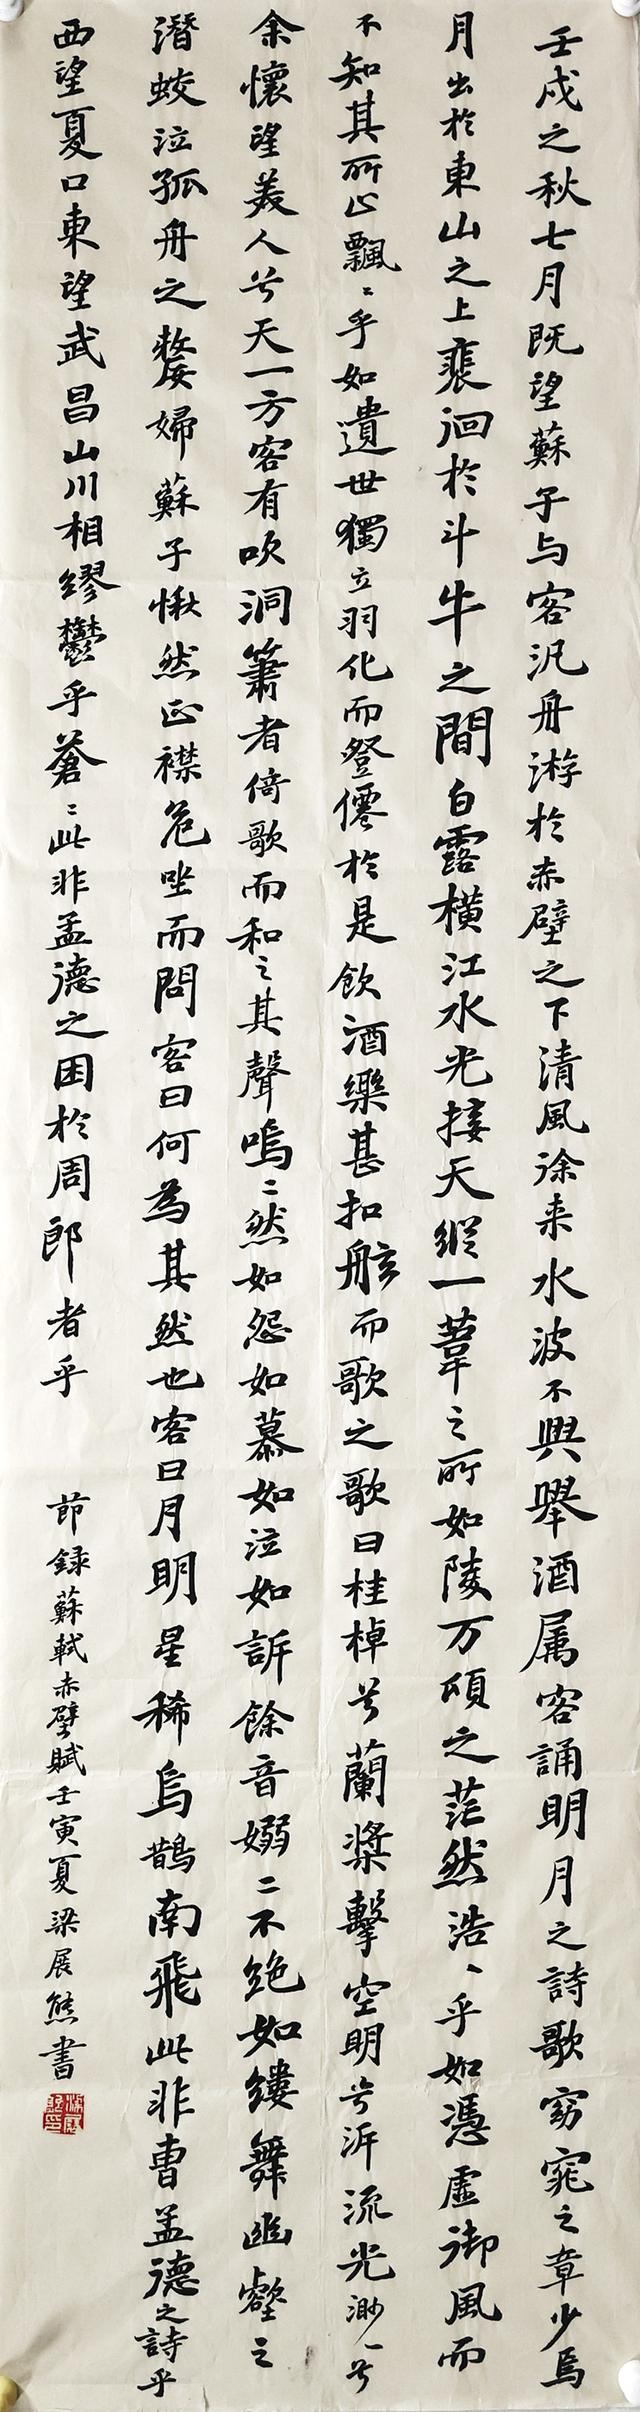 壬戌之秋七月既望蘇子与客汎舟游於赤壁之下清風徐来水波不興舉酒属客誦明月之詩歌窈窕之章少焉
月出於東山之上裴洄於斗牛之間白露橫江水光接天縱一葦之所如陵万頃之茫然浩〻乎如馮虛御風而
不知其所止飄〻乎如遺世獨立羽化而登僊於是飲酒樂甚扣舷而歌之歌曰桂棹兮蘭槳擊空明兮泝流光渺〻兮
余懷望美人兮天一方客有吹洞簫者倚歌而和之其聲嗚〻然如怨如慕如泣如訴餘音嫋〻不絶如縷舞幽壑之
潛蛟泣孤舟之嫠婦蘇子愀然正襟危坐而問客曰何為其然也客曰月明星稀烏鵲南飛此非曹孟德之詩乎
西望夏口東望武昌山川相繆鬱乎蒼〻此非孟德之困於周郎者乎
節録蘇軾赤壁賦壬寅夏梁展熊書